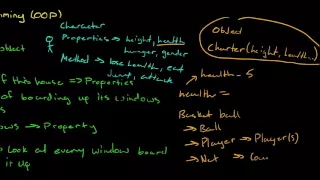 mming (OOP)
object
Character
Properties => height, health
hunger, gender
Method => lose health, eat
Jump, attack
f this house => Properties
of boarding up its windows
s
ws => Property
Look at every window board
it Up
object
Charter(height, health..)
health = 5
health =
Basket ball
=> Ball
=> Player => Player(s)
=> Net =>